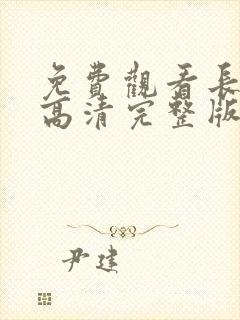 免費觀看長
高清完整版
尹建